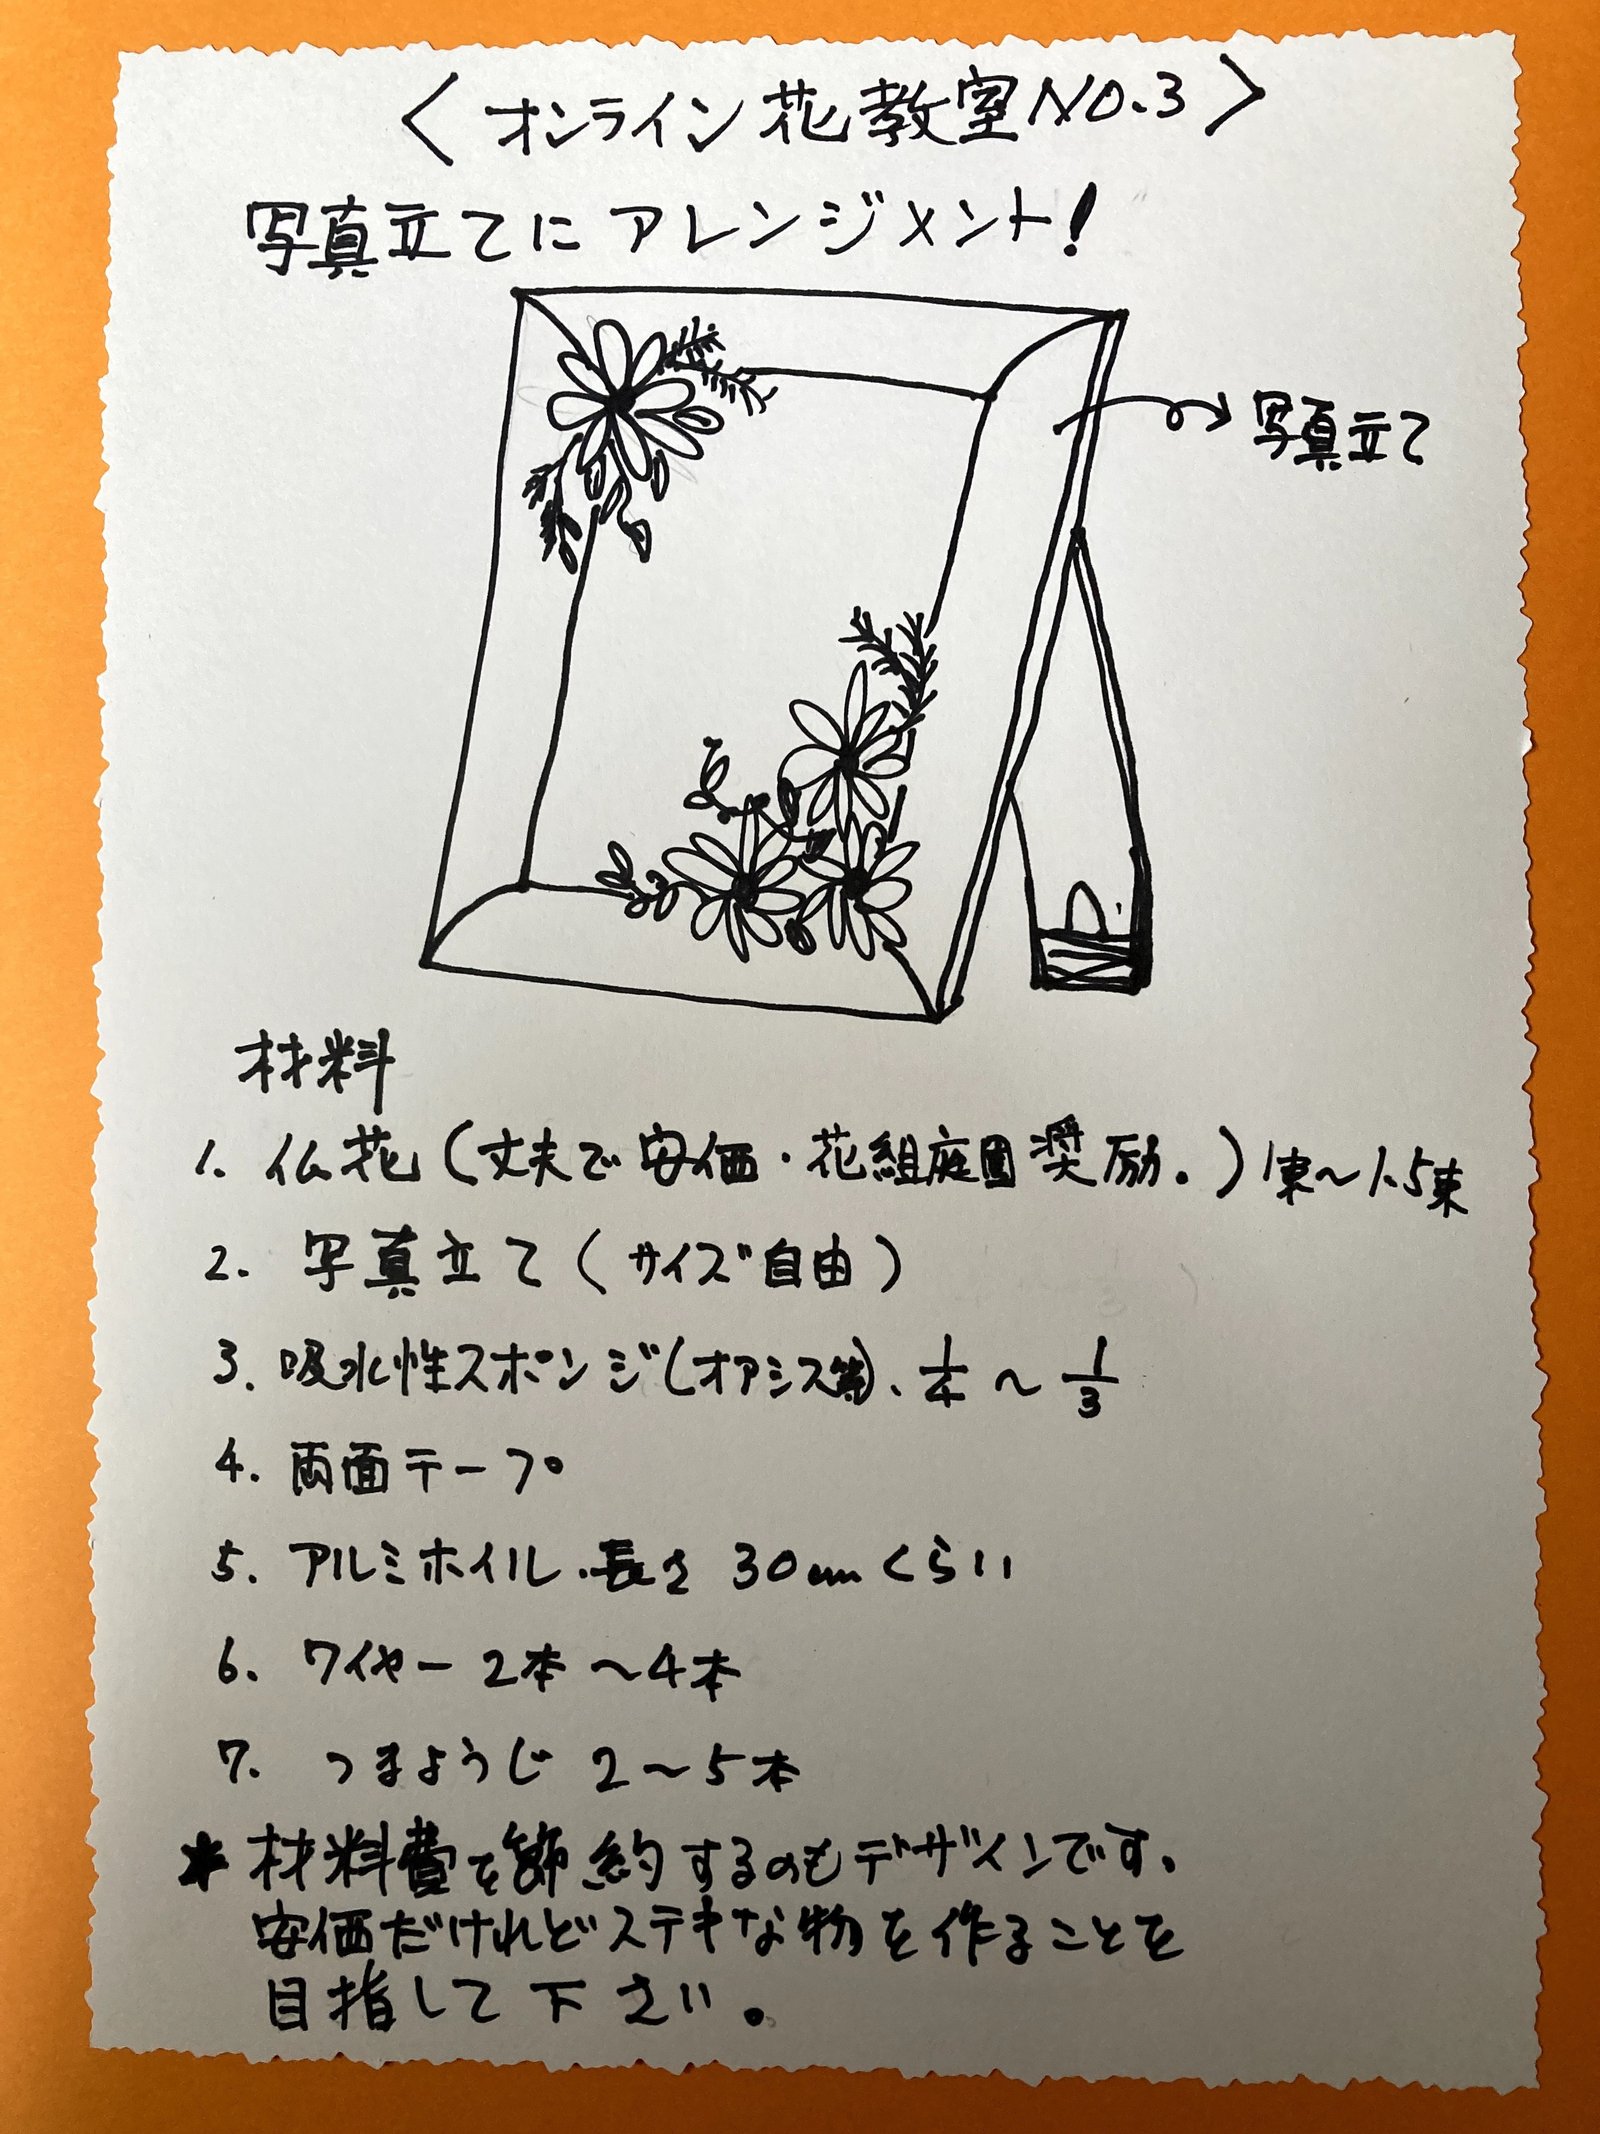 〈オンライン花教室NO.3〉
写真立てにアレンジメント!
写真立て
材料
1. 仏花(丈夫で安価・花組庭園奨励。)1束〜1.5束
2. 写真立て(サイズ自由)
3. 吸水性スポンジ(オアシス等)、1/4〜1/3
4. 両面テープ
5. アルミホイル・長さ30cmくらい
6. ワイヤー2本〜4本
7. つまようじ 2〜5本
*材料費を節約するのもデザインです。
安価だけれどステキな物を作ることを
目指して下さい。